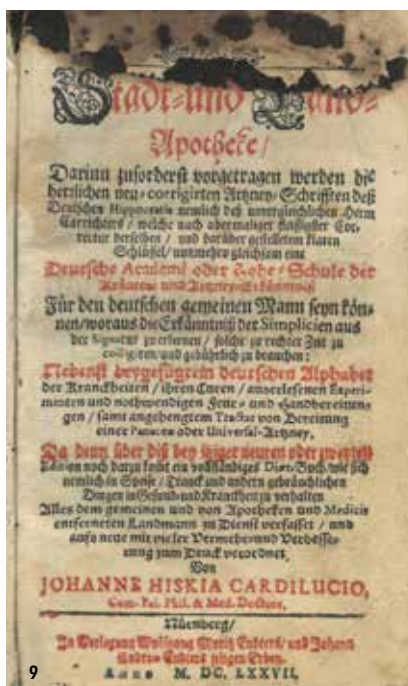 Stadt-und Land-
Apothecke/
Darinn zuforderst vorgetragen werden die
herrlichen neu-corrigirten Artzney-Schrifften deß
Deutschen Hippocratis nemlich deß unvergleichlichen Herrn
Carrichters / welche nach abermaliger fleissigster Cor-
rectur derselben / und darüber gestelletem klaren
Schlüssel/ nunmehr gleichsam eine
Deutsche Academi oder Hohe-Schule der
und Artzney-Erkäntniß
Für den deutschen gemeinen Mann seyn kön-
nen/woraus die Erkänntniß der Simplicien aus
der Signatur zu erlernen / solche zu rechter Zeit zu
colligiren/und gebührlich zu brauchen:
Nebenst beygefügtem deutschen Alphabet
der Kranckheiten / ihren Curen / auserlesenen Experi-
menten und nothwendigen Feuer- und Handbereitun-
gen / samt angehengtem Tractat von Bereitung
einer Panacea oder Universal-Artzney.
Da denn über diß bey itziger neuen oder zweyten
Edition noch darzu kommt ein vollständiges Diæt-Buch/wie sich
nemlich in Speise / Tranck und andern gebräuchlichen
Dingen in Gesund-und Kranckheit zu verhalten
Alles dem gemeinen und von Apothecken und Medicis
entferneten Landmann zu Dienst verfasset / und
aufs neue mit vieler Vermehr-und Verbesse-
rung zum Druck verordnet,
Von
JOHANNE HISKIA CARDILUCIO,
Com. Pal. Phil. & Med. Doctore,
Nürnberg/
In Verlegung Wolffgang Moritz Endters/ und Johann
Andreæ Endters seligen Erben.
Anno M. DC. LXXVII.
9